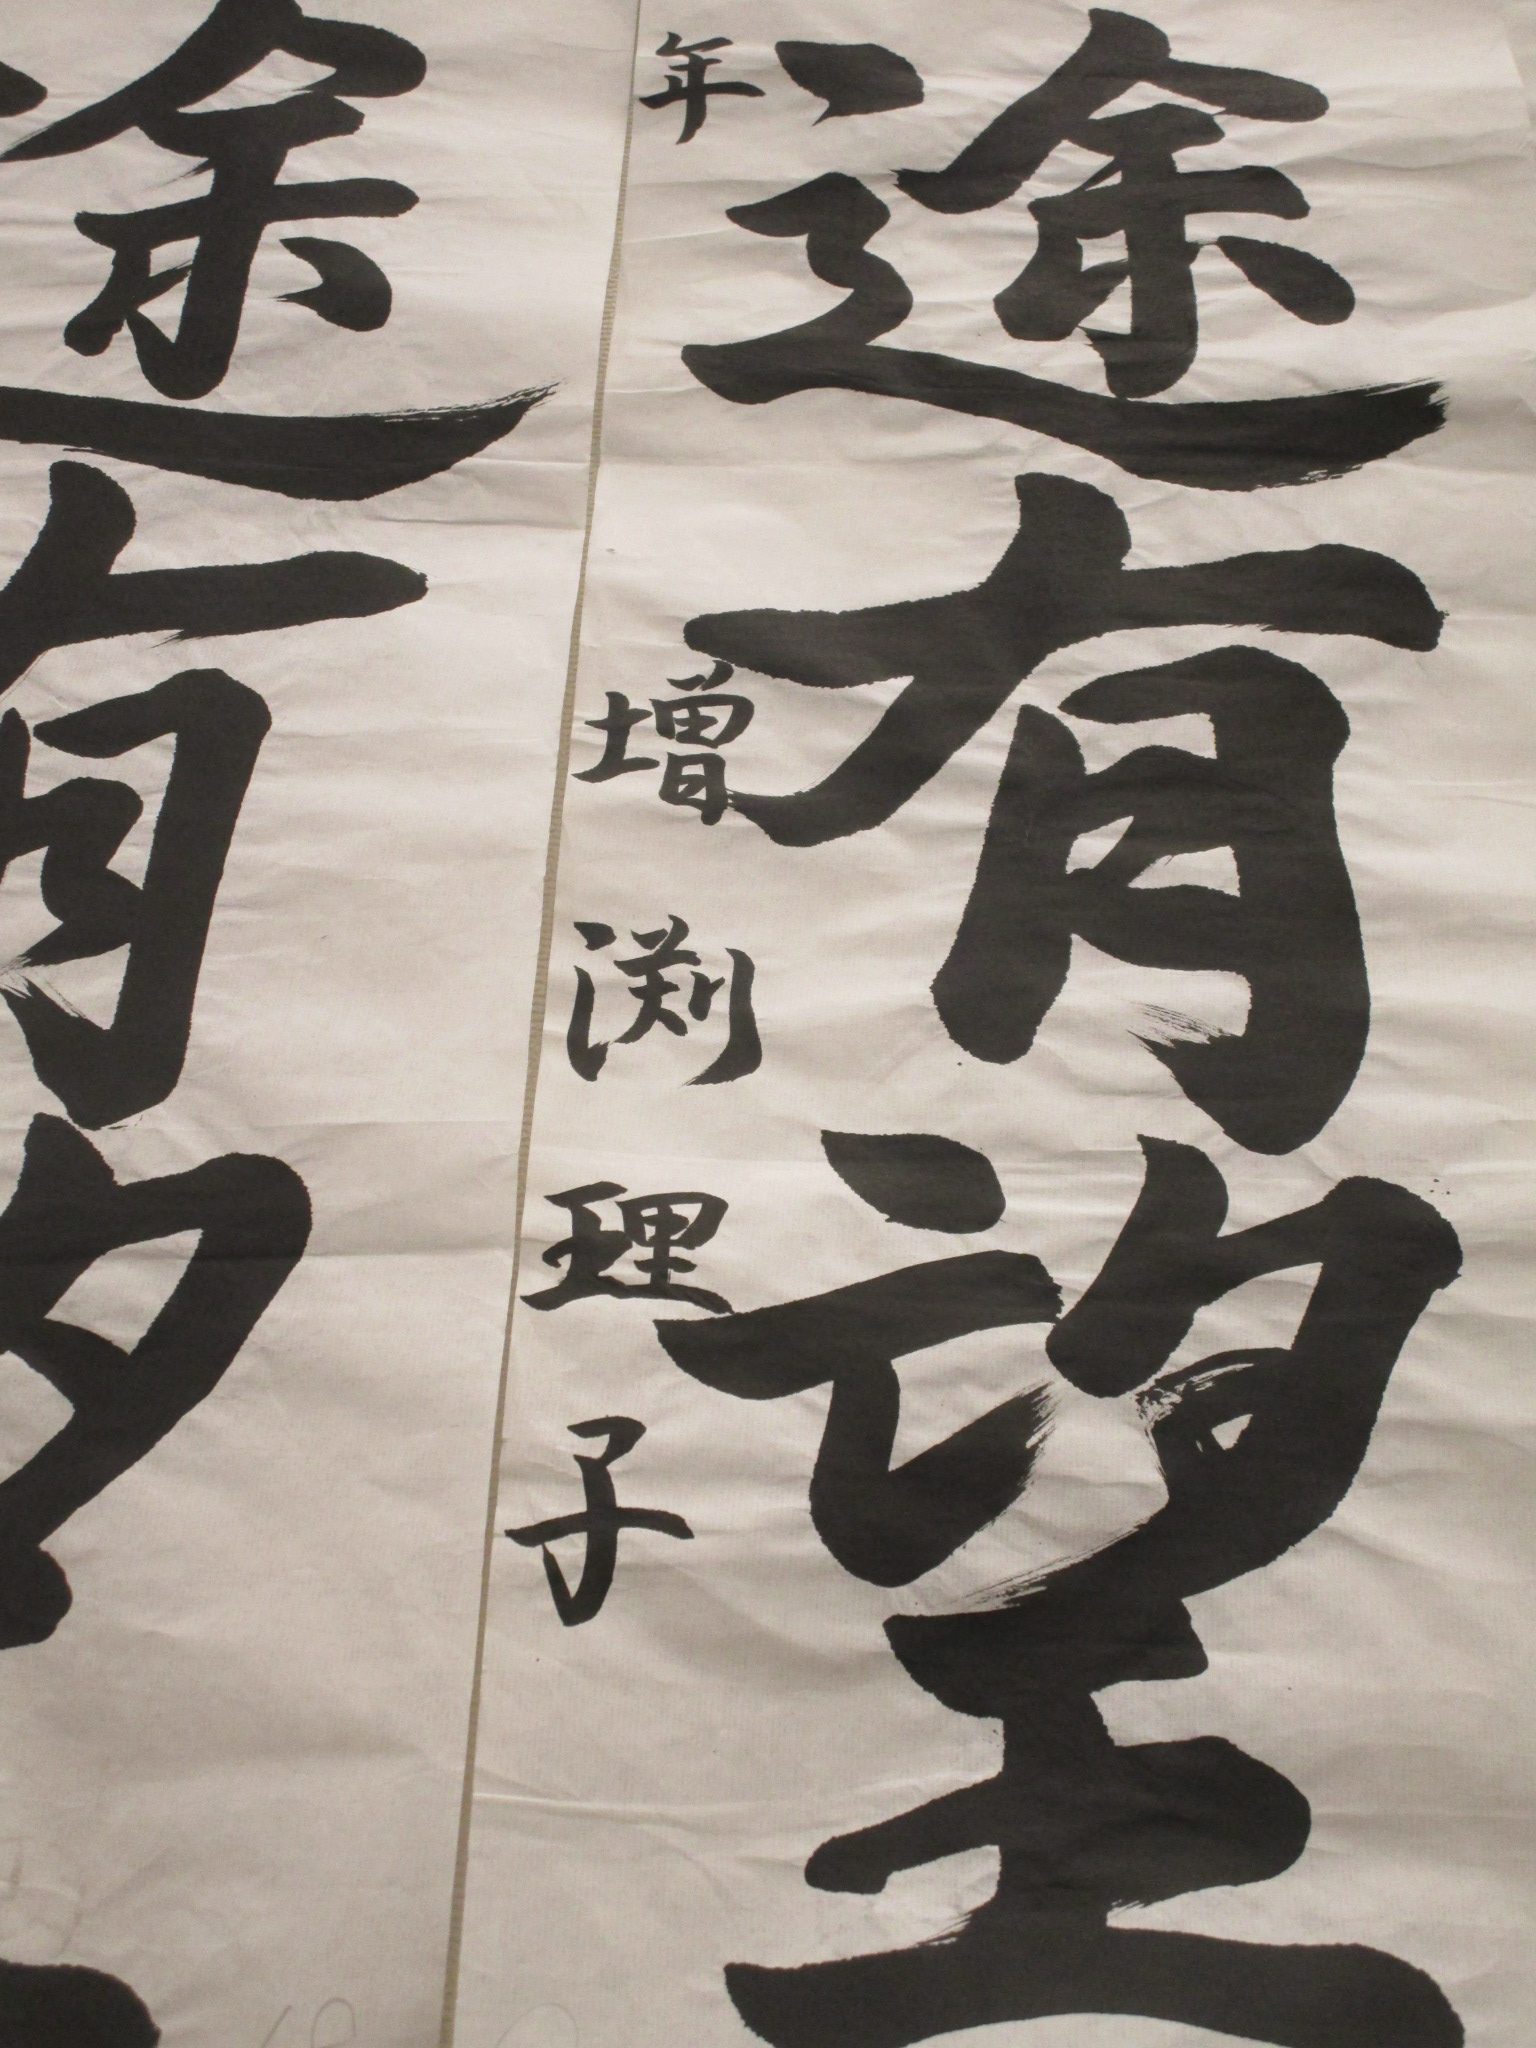 途有望
年 増渕理子
途有望